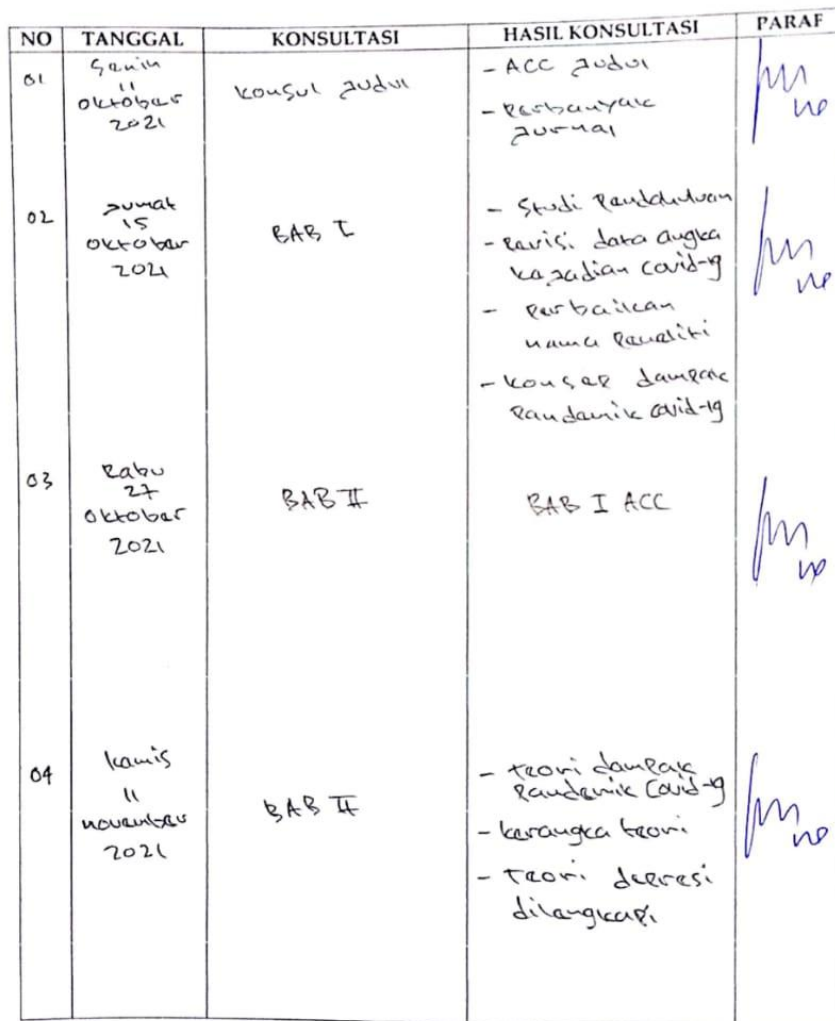 NO TANGGAL KONSULTASI HASIL KONSULTASI PARAF
01
Senin
11
oktober
2021
konsul Judul
- ACC Judul
- Perbanyak
Jurnal
02
Jumat
15
oktober
2021
BAB I
- Studi Pendahuluan
- Revisi data angka
kejadian Covid-19
- Perbaikan
nama Peneliti
- konsep dampak
Pandemik Covid-19
03
Rabu
27
oktober
2021
BAB II
BAB I ACC
04
kamis
11
november
2021
BAB II
- teori dampak
Pandemik Covid-19
- kerangka teori
- teori depresi
dilengkapi